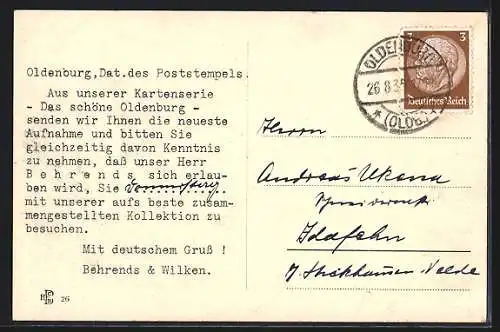 Oldenburg,Dat.des Poststempels.
Aus unserer Kartenserie
- Das schöne Oldenburg -
senden wir Ihnen die neueste
Aufnahme und bitten Sie
gleichzeitig davon Kenntnis
zu nehmen, daß unser Herr
B e h r e n d s sich erlau-
ben wird, Sie Donnerstag
mit unserer aufs beste zusam-
mengestellten Kollektion zu
besuchen.
Mit deutschem Gruß !
Behrends & Wilken.
26
OLDENBURG
26.8.35
* (OLDB)
3 3
Deutsches Reich
Herrn
Andreas Ukena
Idafehn
Strickhausen